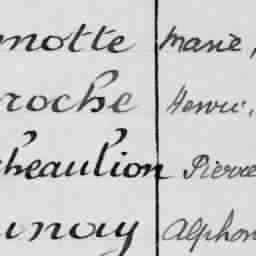 motte Marie,
roche Henri,
heaulion Pierre
unay Alphon